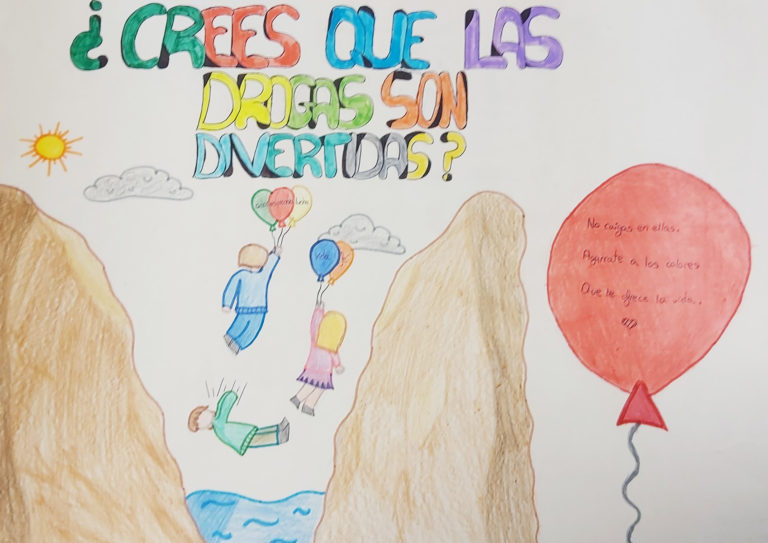 ¿CREES QUE LAS
DROGAS SON
DIVERTIDAS?
esperanza
vida
No caigas en ellas.
Agarrate a los colores
Que te ofrece la vida.